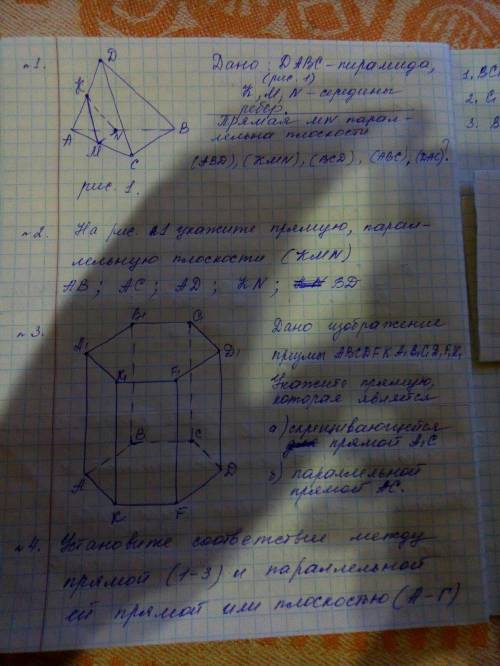 №1.
Дано: DABC - пирамида,
(рис. 1)
K, M, N - середины
ребер.
Прямая MN парал-
лельна плоскости
(ABD), (KMN), (BCD), (ABC), (DAC)?
D
K
A
N
B
M
C
рис. 1.
№2. На рис. 1 укажите прямую, парал-
лельную плоскости (KMN)
AB; AC; AD; KN; BD
№3.
Дано изображение
призмы ABCDFK A1B1C1D1F1K1
Укажите прямую,
которая является
а) скрещивающейся
прямой A1C
б) параллельной
прямой AC.
B1
C1
A1
D1
K1
F1
B
C
A
D
K
F
№4. Установите соответствие между
прямой (1-3) и параллельной
ей прямой или плоскостью (А-Г)
1, BC
2, C
3. B